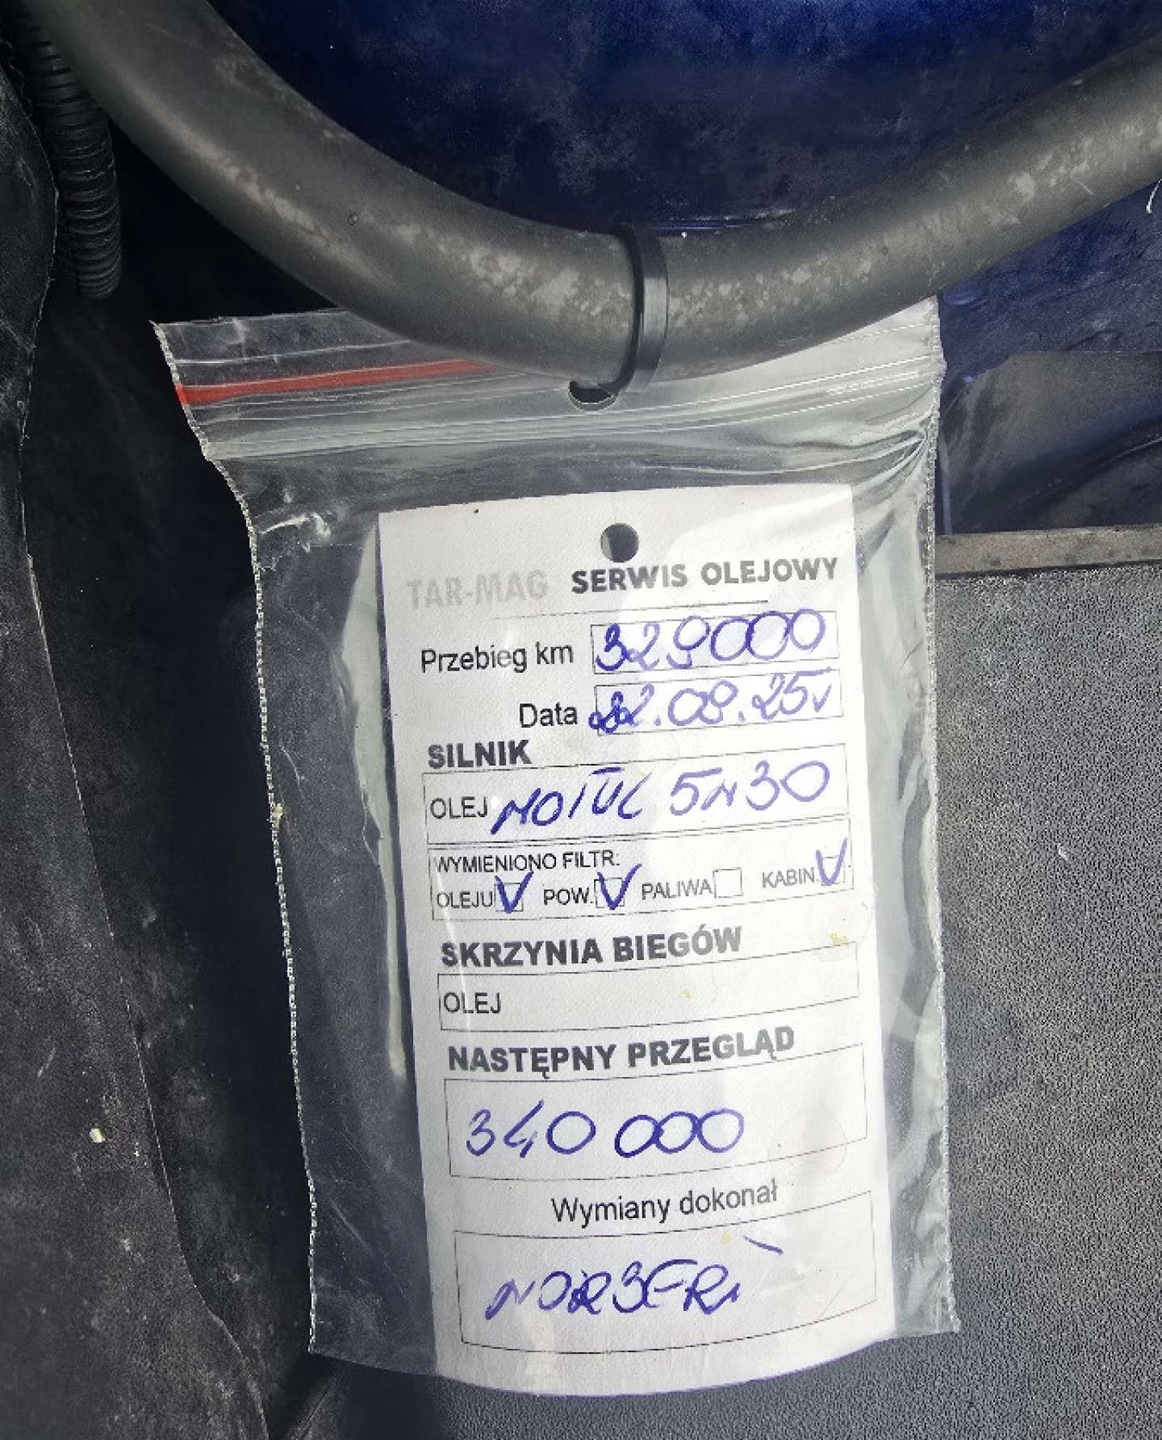 TAR-MAG SERWIS OLEJOWY
Przebieg km 329000
Data 22.08.25r
SILNIK
OLEJ MOTUL 5W30
WYMIENIONO FILTR:
OLEJU V POW. V PALIWA KABIN. V
SKRZYNIA BIEGÓW
OLEJ
NASTĘPNY PRZEGLĄD
340 000
Wymiany dokonał
NORBERT